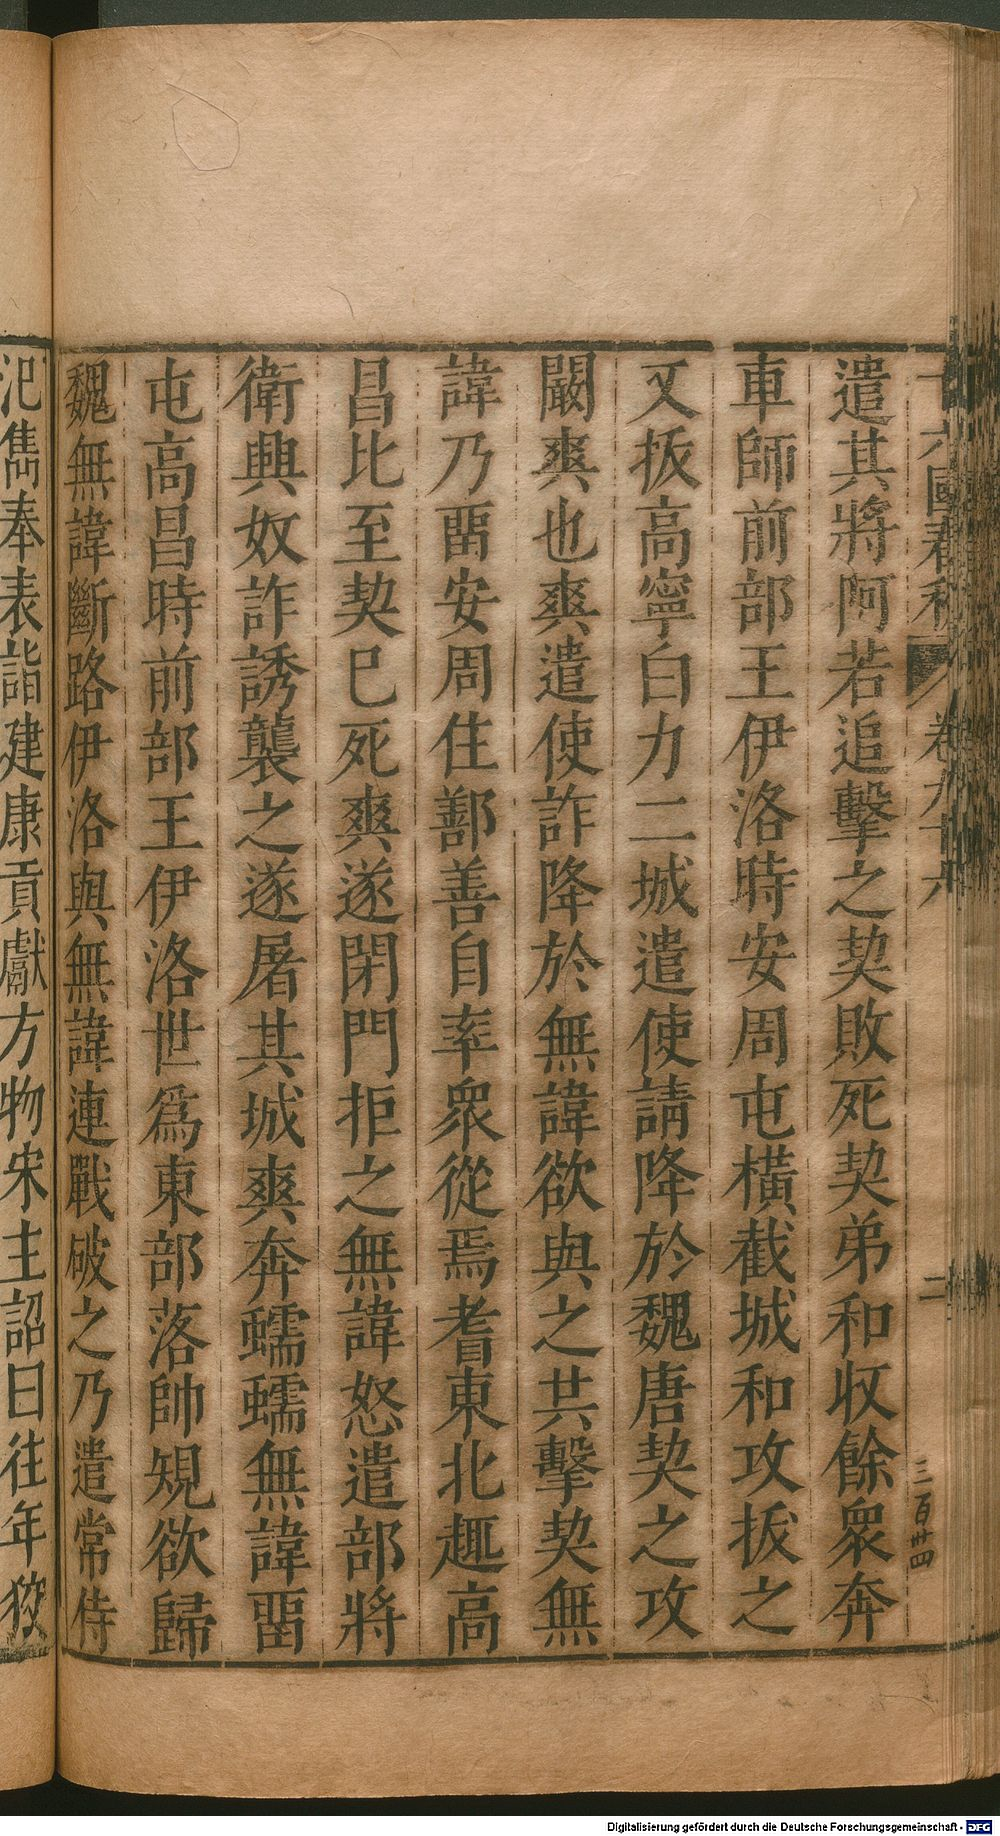 十六國春秋 卷九十六 二
三百卅四
遣其將阿若追擊之契敗死契弟和收餘衆奔
車師前部王伊洛時安周屯橫截城和攻拔之
又拔高寧白力二城遣使請降於魏唐契之攻
闞爽也爽遣使詐降於無諱欲與之共擊契無
諱乃畱安周住鄯善自率衆從焉耆東北趣高
昌比至契巳死爽遂閉門拒之無諱怒遣部將
衛興奴詐誘襲之遂屠其城爽奔蠕蠕無諱畱
屯高昌時前部王伊洛世爲東部落帥規欲歸
魏無諱斷路伊洛與無諱連戰破之乃遣常侍
氾雋奉表詣建康貢獻方物宋主詔曰往年狡
Digitalisierung gefördert durch die Deutsche Forschungsgemeinschaft - DFG